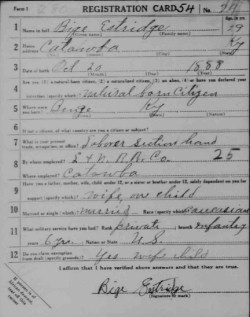 Form 1 REGISTRATION CARD No.
1 Name in full Bige Estridge Age, in yrs. 29
(Given name) (Family name)
2 Home address Catawba Ky
3 Date of birth Oct 20 1888
(Month) (Day) (Year)
4 Are you (1) a natural-born citizen, (2) a naturalized citizen, (3) an alien, (4) or have you declared your
intention (specify which)? Natural born Citizen
5 Where were you born? Ky
6 If not a citizen, of what country are you a citizen or subject?
7 What is your present trade, occupation, or office? Laborer section hand
8 By whom employed? L & N. R.R. Co. 25
Where employed? Catawba
9 Have you a father, mother, wife, child under 12, or a sister or brother under 12, solely dependent on you for
support (specify which)? wife, one child
10 Married or single (which)? married Race (specify which)? Caucasian
11 What military service have you had? Rank private ; branch Infantry
years 6 yrs. Nation or State U.S.
12 Do you claim exemption from draft (specify grounds)? Yes wife child
I affirm that I have verified above answers and that they are true.
Bige Estridge
(Signature or mark)